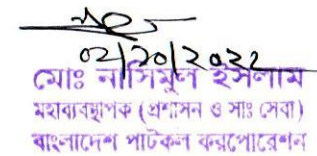 02/20/2022
মোঃ নাসিমুল ইসলাম
মহাব্যবস্থাপক (প্রশাসন ও সাঃ সেবা)
বাংলাদেশ পাটকল করপোরেশন